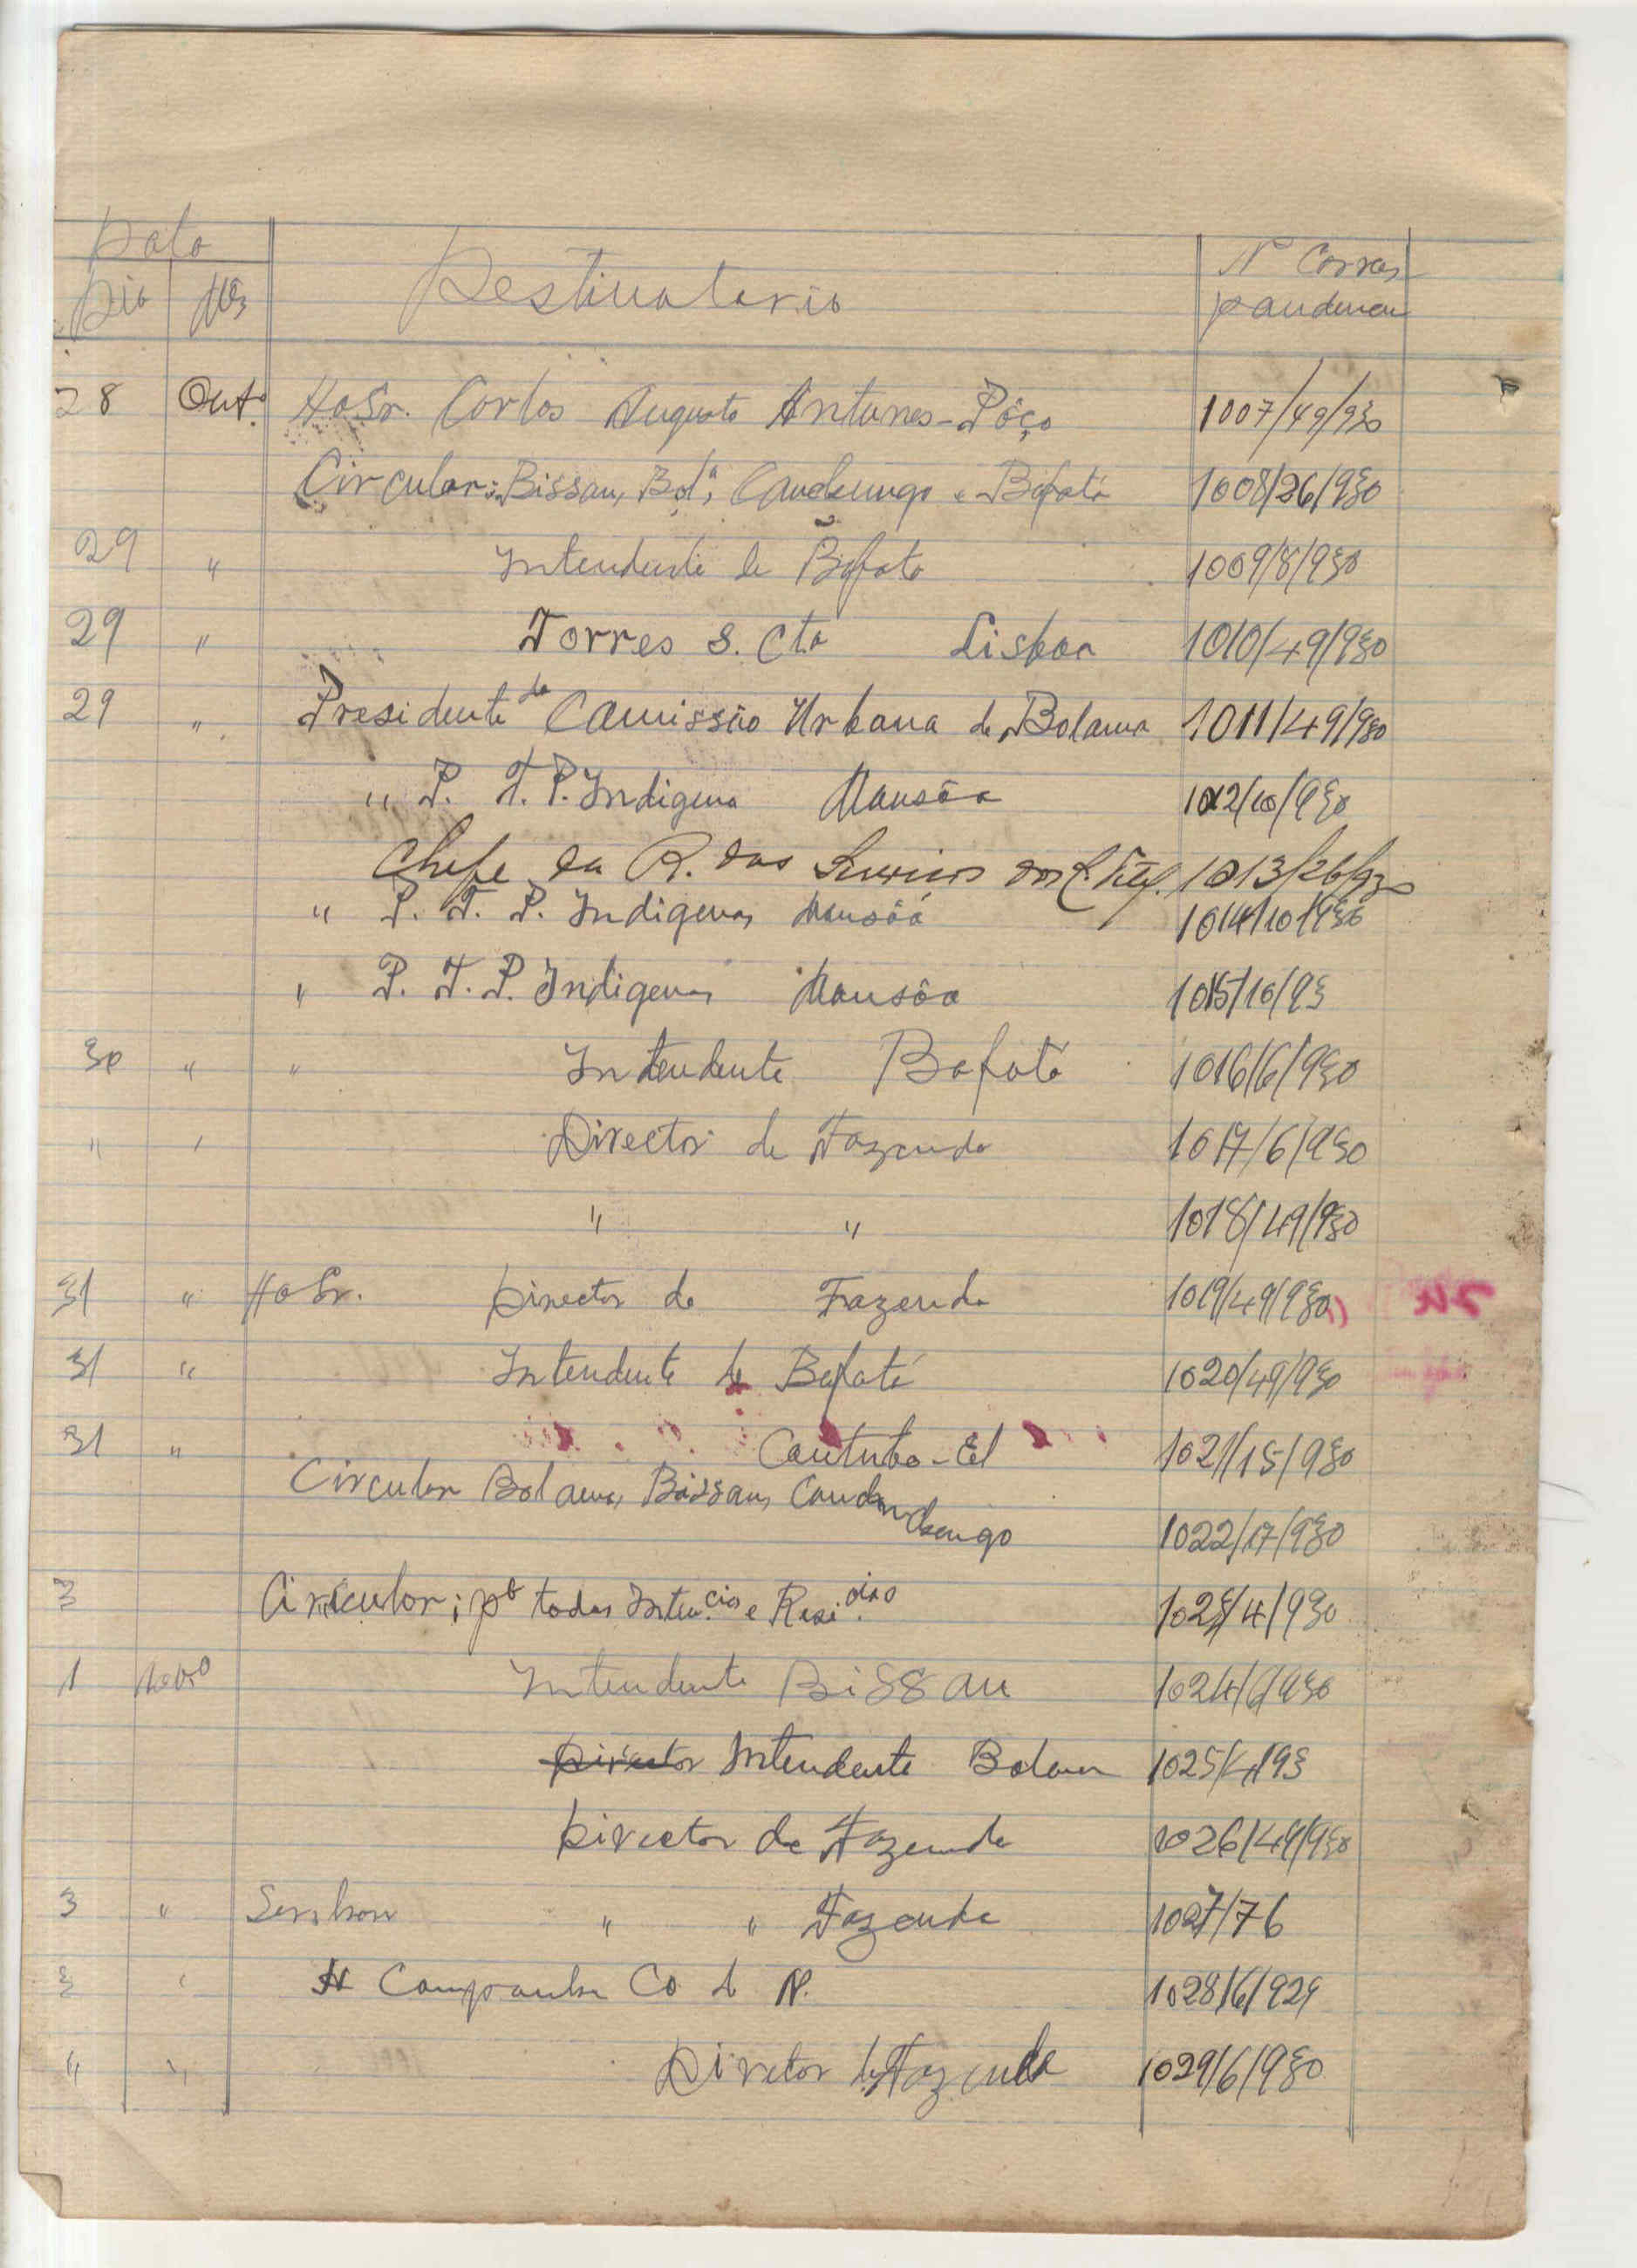 Data
Dia Mês Destinatario Nº Corres
pondencia
28 Out.º Ao Sr. Carlos Augusto Antunes - Pôço 1007/49/930
Circular: Bissau, Bol.ª, Canchungo e Bafatá 1008/26/930
29 " Intendente de Bafata 1009/8/930
29 " Torres & Cta Lisboa 1010/49/930
29 " Presidente da Comissão Urbana de Bolama 1011/49/930
" P. T. P. Indigena Mansôa 1012/10/930
Chefe da R. dos Serviços dos C. Tel. 1013/26/930
" P. T. P. Indigenas Mansôa 1014/10/930
" P. T. P. Indigenas Mansôa 1015/10/93
30 " " Intendente Bafatá 1016/6/930
" " Director de Fazenda 1017/6/930
" " 1018/49/930
31 " Ao Sr. Director de Fazenda 1019/49/930
31 " Intendente de Bafatá 1020/49/930
31 " Contubo-El 1021/15/930
Circular Bolama, Bissau, Canchungo
1022/17/930
3 Circular; pª todas Inten.cias e Resi.cias 1023/4/930
1 Novº Intendente Bissau 1024/6/930
Director Intendente Bolama 1025/4/93
Director de Fazenda 1026/49/930
3 " Senhor " " Fazenda 1027/76
3 " A Companhia Co de N. 1028/6/929
" " Diretor de Fazenda 1029/6/930